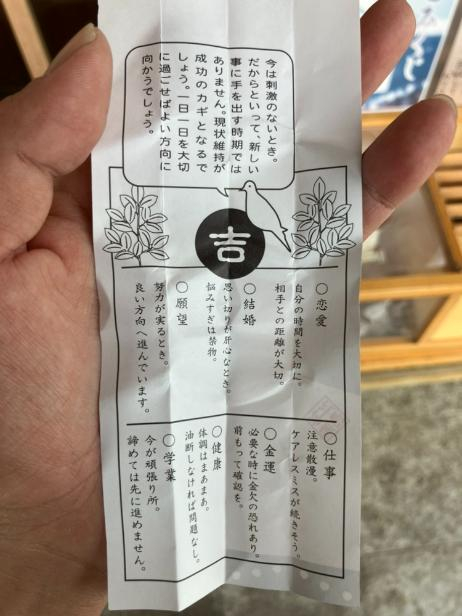 今は刺激のないとき。
だからといって、新しい
事に手を出す時期では
ありません。現状維持が
成功のカギとなるで
しょう。一日一日を大切
に過ごせばよい方向に
向かうでしょう。
吉
○恋愛
自分の時間を大切に。
相手との距離が大切。
○結婚
思い切りが肝心なとき。
悩みすぎは禁物。
○願望
努力が実るとき。
良い方向へ進んでいます。
○仕事
注意散漫。
ケアレスミスが続きそう。
○金運
必要な時に金欠の恐れあり。
前もって確認を。
○健康
体調はまあまあ。
油断しなければ問題なし。
○学業
今が頑張り所。
諦めては先に進めません。